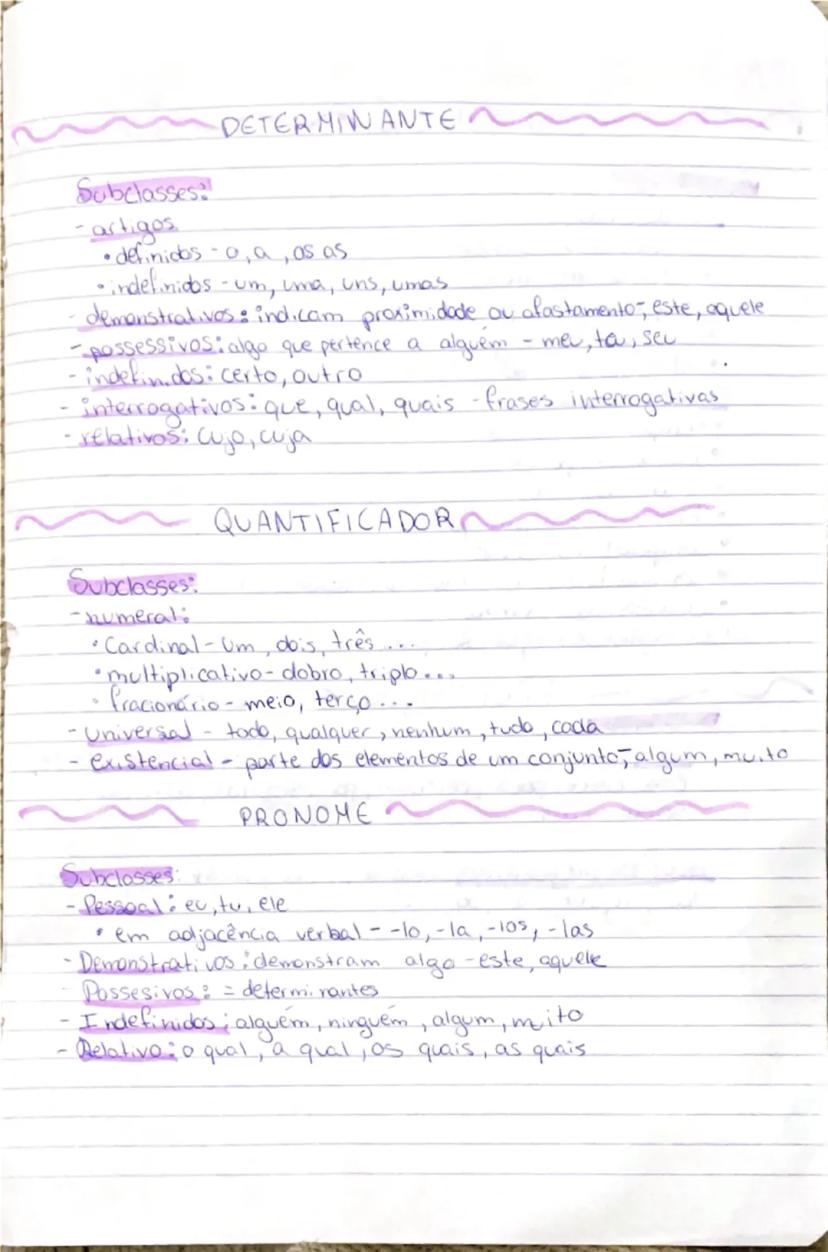 DETERMINANTE
Subclasses:
- artigos
• definidos - o, a, os as
• indefinidos - um, uma, uns, umas
- demonstrativos: indicam proximidade ou afastamento - este, aquele
- possessivos: algo que pertence a alguém - meu, teu, seu
- indefinidos: certo, outro
- interrogativos: que, qual, quais - frases interrogativas
- relativos: cujo, cuja
QUANTIFICADOR
Subclasses:
- numeral:
• Cardinal - um, dois, três ...
• multiplicativo - dobro, triplo...
• fracionário - meio, terço ...
- Universal - todo, qualquer, nenhum, tudo, cada
- existencial - parte dos elementos de um conjunto - algum, muito
PRONOME
Subclasses:
- Pessoal: eu, tu, ele
• em adjacência verbal - -lo, -la, -los, -las
- Demonstrativos: demonstram algo - este, aquele
- Possesivos: = determinantes
- Indefinidos: alguém, ninguém, algum, muito
- Relativo: o qual, a qual, os quais, as quais